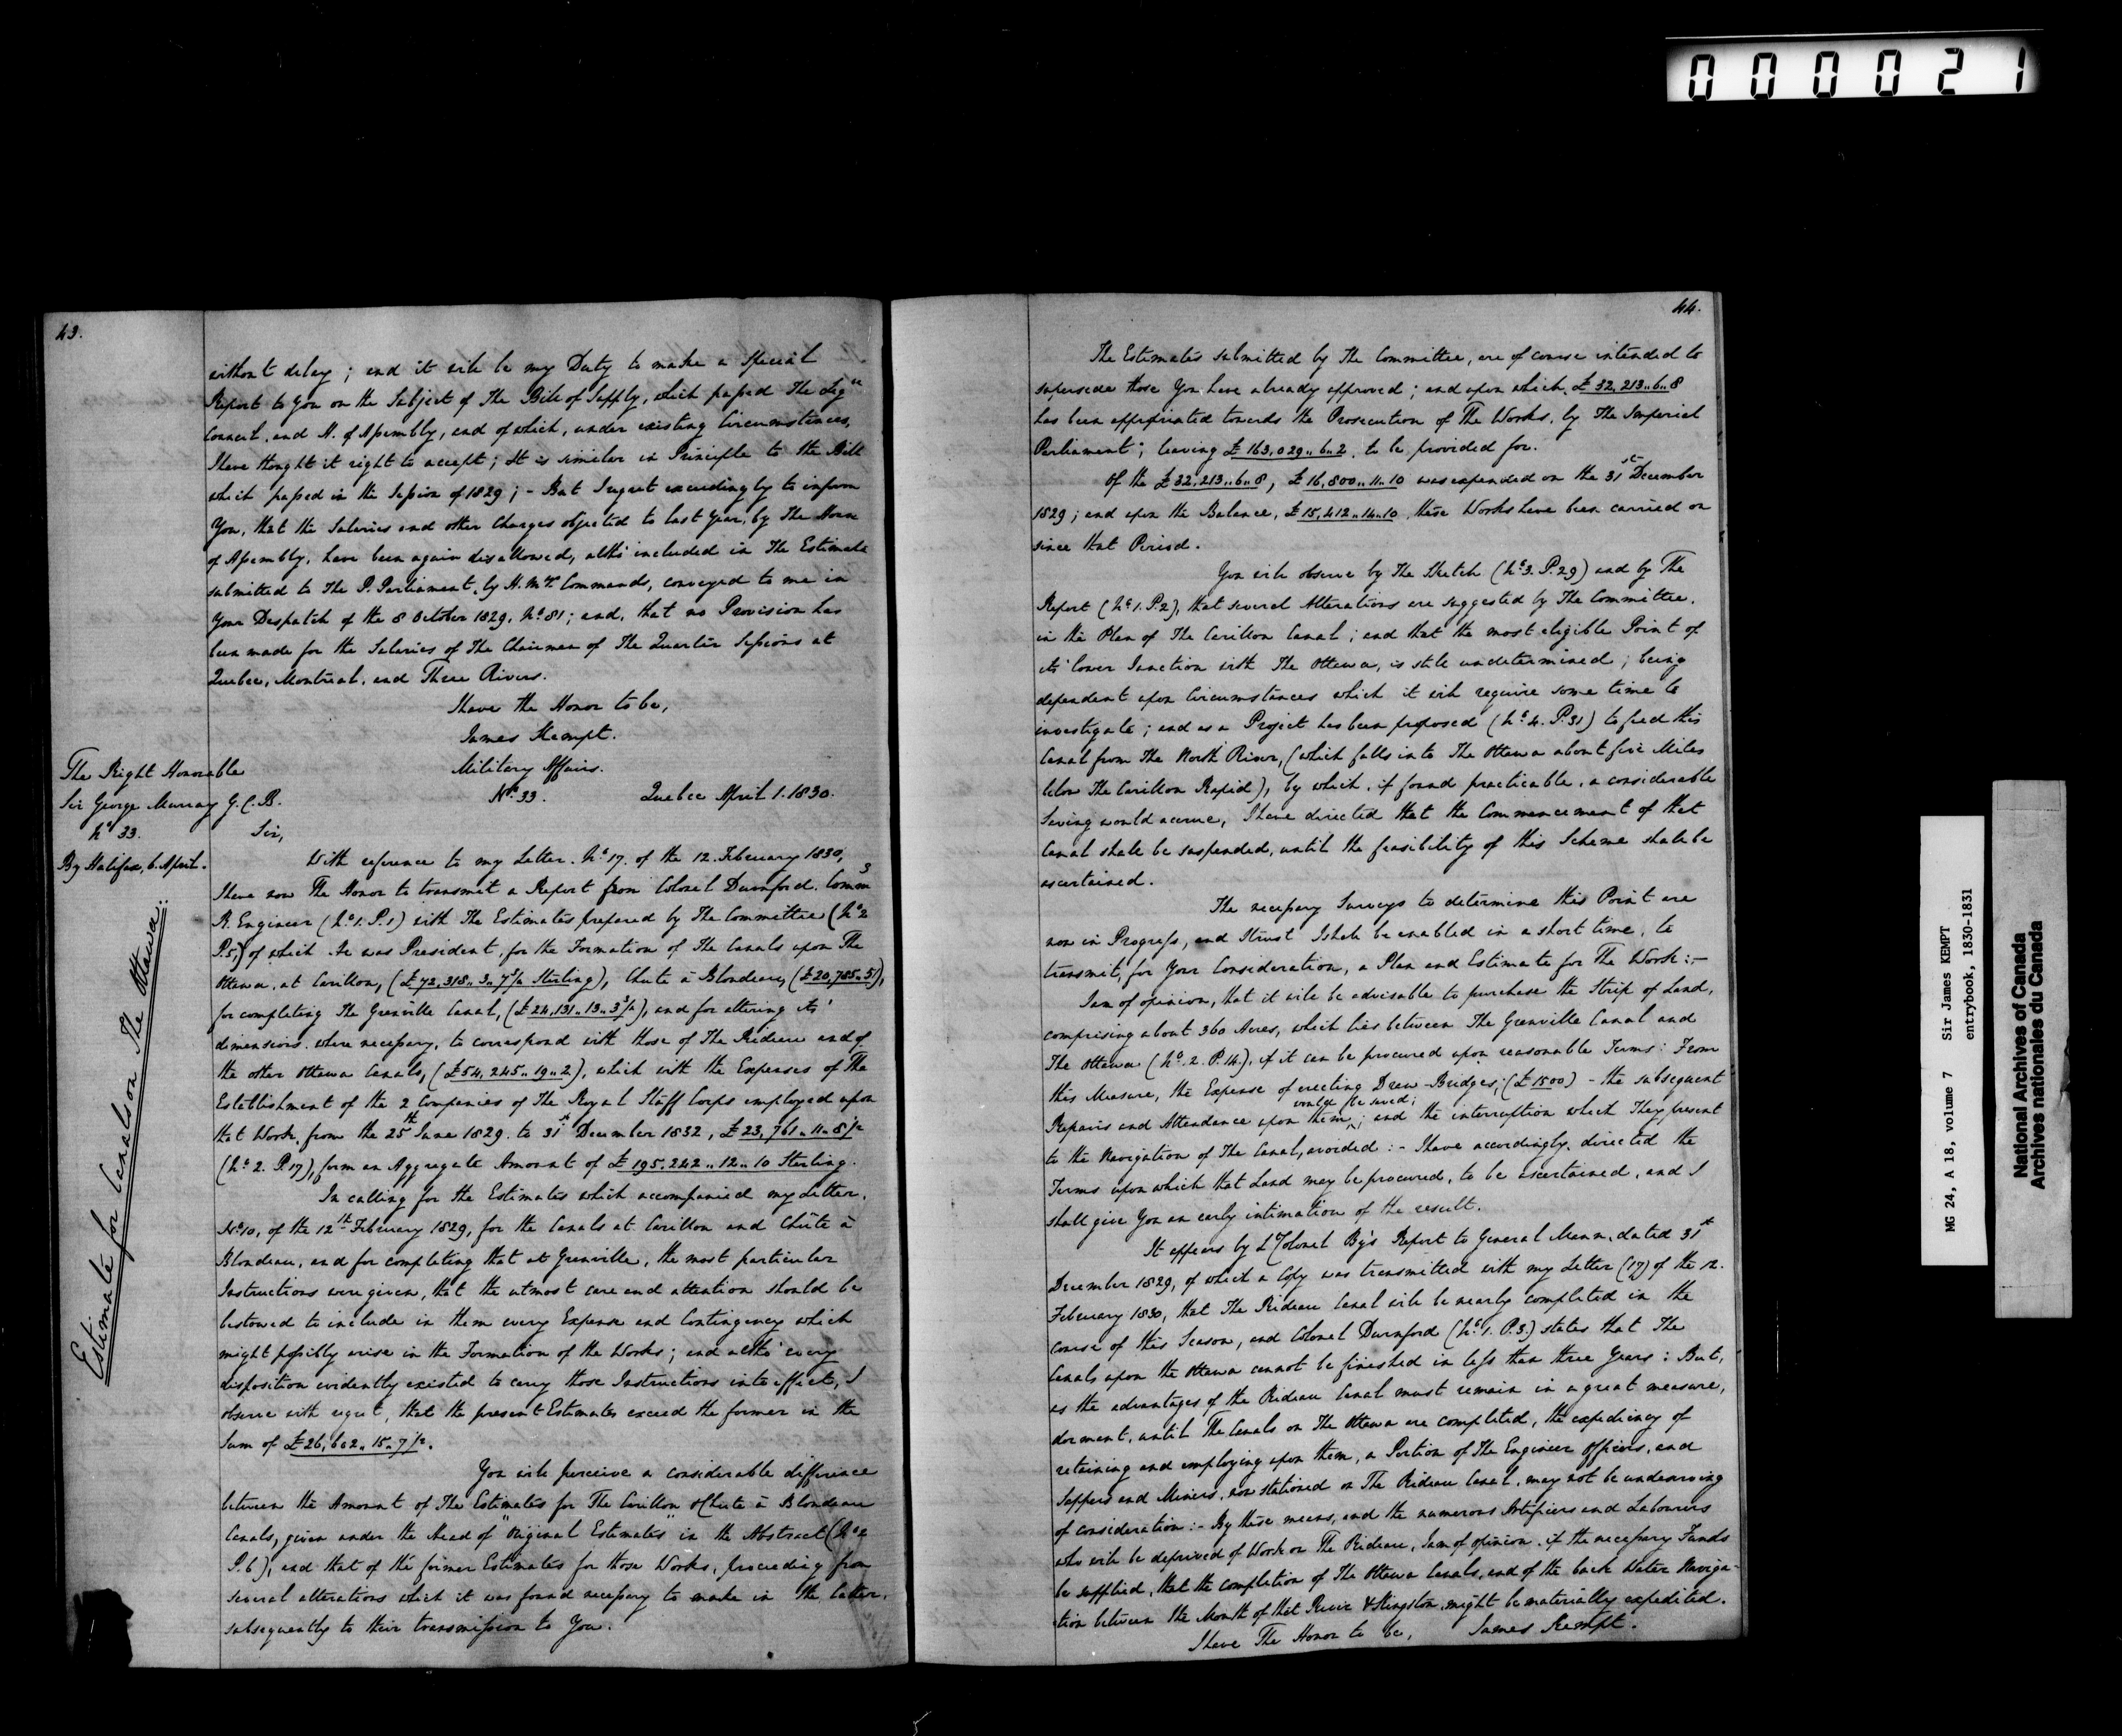 000021
43.
without delay; and it will be my Duty to make a Special
Report to You on the Subject of The Bill of Supply, which passed The Leg.ve
Council, and H. of Assembly, and of which, under existing Circumstances,
I have thought it right to accept; It is similar in Principle to the Bill
which passed in the Session of 1829; - But I regret exceedingly to inform
You, that the Salaries and other Charges objected to last Year, by The House
of Assembly, have been again disallowed, altho' included in The Estimate
submitted to The P. Parliament, by H. M.'s Commands, conveyed to me in
Your Despatch of the 8 October 1829, No. 81; and, that no Provision has
been made for the Salaries of The Chairmen of The Quarter Sessions at
Quebec, Montreal, and Three Rivers.
I have the Honor to be,
James Kempt.
The Right Honorable
Sir George Murray G.C.B.
No. 33.
By Halifax, 6. April.
Military Affairs.
No. 33. Quebec April 1. 1830.
Sir,
Estimate for Canals on The Ottawa:
With reference to my Letter No. 17. of the 12. February 1830,
I have now The Honor to transmit a Report from Colonel Durnford, Comm.g
R. Engineer (No. 1. P. 1) with The Estimates prepared by The Committee (No. 2
P. 5,) of which He was President, for the Formation of The Canals upon The
Ottawa, at Carillon, (£72,318.. 3.. 7 1/2 Sterling), Chute à Blondeau, (£20,785.. 5),
for completing The Grenville Canal, (£24,131.. 13.. 3 1/2), and for altering its'
dimensions where necessary, to correspond with those of The Rideau and of
the other Ottawa Canals, (£54,245.. 19.. 2), which with the Expenses of The
Establishment of the 2 Companies of The Royal Staff Corps employed upon
that Work, from the 25th June 1829. to 31st December 1832, £23,761.. 11.. 8 1/2
(No. 2. P. 17), form an Aggregate Amount of £195,242.. 12.. 10 Sterling.
In calling for the Estimates which accompanied my Letter,
No. 10, of the 12th February 1829, for the Canals at Carillon and Chûte à
Blondeau, and for completing that at Grenville, the most particular
Instructions were given, that the utmost care and attention should be
bestowed to include in them every Expense and Contingency which
might possibly arise in the Formation of the Works; and altho' every
disposition evidently existed to carry those Instructions into effect, I
observe with regret, that the present Estimates exceed the former in the
Sum of £26,602.. 15.. 7 1/2.
You will perceive a considerable difference
between the Amount of The Estimates for The Carillon & Chute à Blondeau
Canals, given under the Head of "Original Estimates" in the Abstract (No. 2
P. 6), and that of the former Estimates for those Works, proceeding from
several alterations which it was found necessary to make in the latter,
subsequently to their transmission to You.
44.
The Estimates submitted by The Committee, are of course intended to
supersede those You have already approved; and upon which £32,213.. 6.. 8
has been appropriated towards the Prosecution of The Works, by The Imperial
Parliament; leaving £163,029.. 6.. 2, to be provided for.
Of the £32,213.. 6.. 8, £16,800.. 11.. 10 was expended on the 31st December
1829; and upon the Balance, £15,412.. 14.. 10, these Works have been carried on
since that Period.
You will observe by The Sketch (No. 3. P. 29) and by The
Report (No. 1. P. 2), that several Alterations are suggested by The Committee,
in the Plan of The Carillon Canal; and that the most eligible Point of
its' lower Junction with The Ottawa, is still undetermined; being
dependent upon Circumstances which it will require some time to
investigate; and as a Project has been proposed (No. 4. P. 31) to feed this
Canal from The North River, (which falls into The Ottawa about five Miles
below The Carillon Rapid), by which, if found practicable, a considerable
Saving would accrue, I have directed that the Commencement of that
Canal shall be suspended, until the feasibility of this Scheme shall be
ascertained.
The necessary Surveys to determine this Point are
now in Progress, and I trust I shall be enabled in a short time, to
transmit, for Your Consideration, a Plan and Estimate for The Work:-
I am of opinion, that it will be advisable to purchase the Strip of Land,
comprising about 360 Acres, which lies between The Grenville Canal and
The Ottawa (No. 2. P. 14), if it can be procured upon reasonable Terms: From
this Measure, the Expense of erecting Draw-Bridges, (£1500) - the subsequent
Repairs and Attendance upon them, would be saved; and the interruption which They present
to the Navigation of The Canal, avoided:- I have accordingly, directed the
Terms upon which that Land may be procured, to be ascertained, and I
shall give You an early intimation of the result.
It appears by Lt. Colonel By's Report to General Mann, dated 31st
December 1829, of which a Copy was transmitted with my Letter (17) of the 12.
February 1830, that The Rideau Canal will be nearly completed in the
course of this Season, and Colonel Durnford (No. 1. P. 3.) states that The
Canals upon the Ottawa cannot be finished in less than three Years: But,
as the advantages of the Rideau Canal must remain in a great measure,
dormant, until The Canals on The Ottawa are completed, the expediency of
retaining and employing upon them, a Portion of The Engineer Officers, and
Sappers and Miners, now stationed on The Rideau Canal, may not be undeserving
of consideration:- By these means, and the numerous Artificers and Labourers
who will be deprived of Work on The Rideau, I am of opinion, if the necessary Funds
be supplied, that the completion of The Ottawa Canals, and of the back Water Naviga-
tion between the Mouth of that River & Kingston, might be materially expedited.
I have The Honor to be, James Kempt.
MG 24, A 18, volume 7 Sir James KEMPT
entrybook, 1830-1831
National Archives of Canada
Archives nationales du Canada